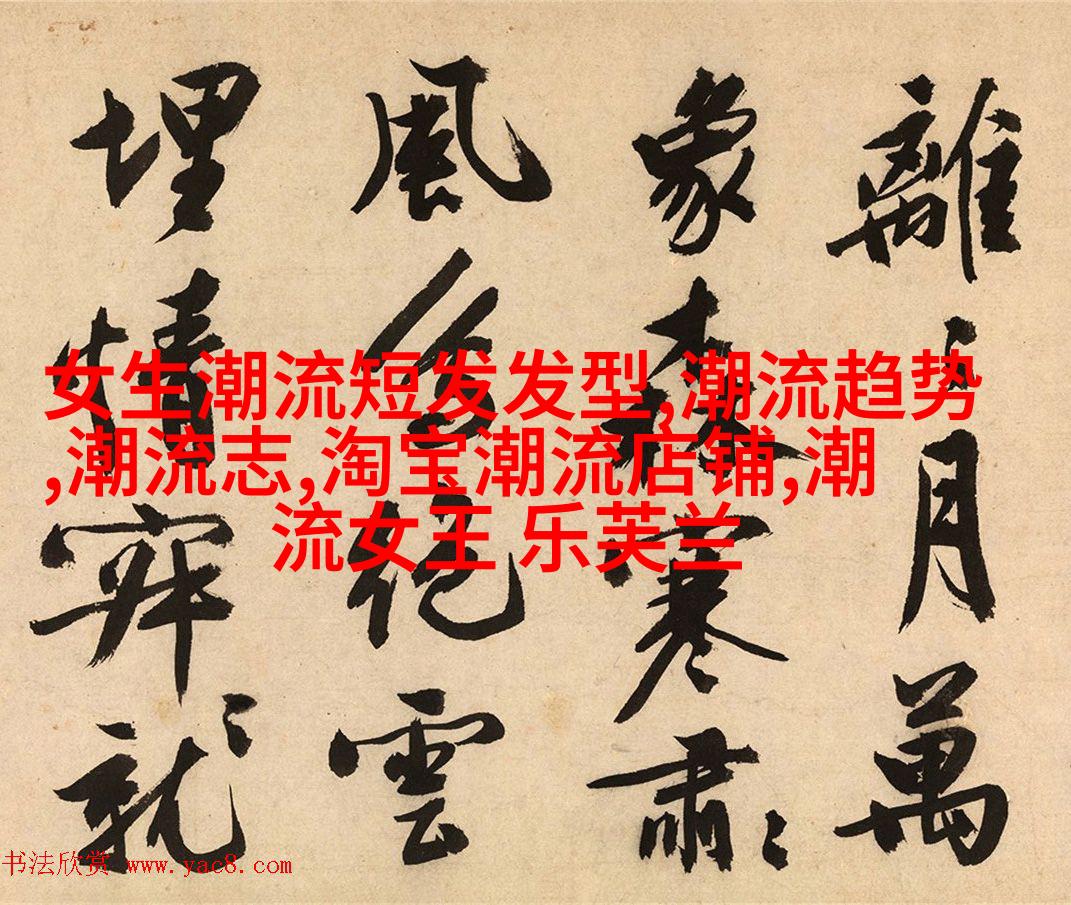 女生潮流短发发型,潮流趋势
,潮流志,淘宝潮流店铺,潮
流女王 乐芙兰
離月萬
象森寒肅
風絕雲
埋情就
书法欣赏 www.yac8.com